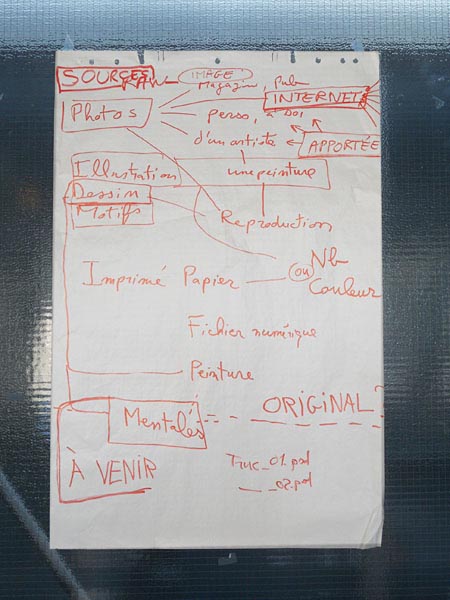 SOURCES
IMAGE
Magazine, pub
INTERNET
Photos
perso, à soi
d'un artiste
APPORTÉE
Illustration
une peinture
Dessin
Motifs
Reproduction
Imprimé Papier
ou Nb
Couleur
Fichier numérique
Peinture
Mentales
ORIGINAL?
À VENIR
Truc_01.psd
_02.psd